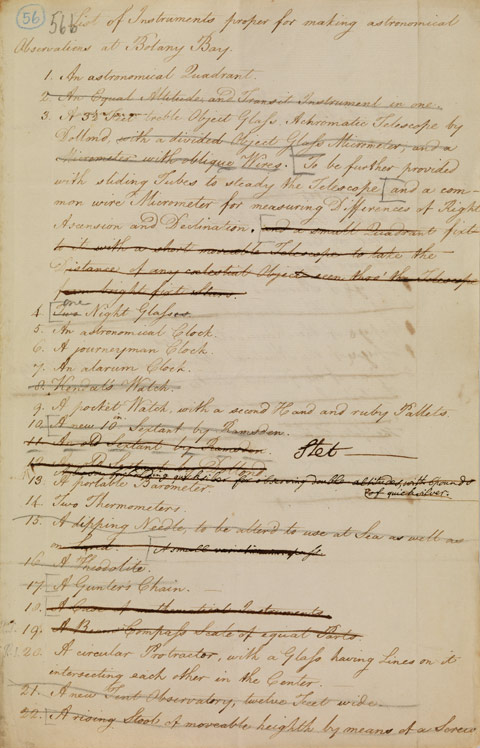 56
566
List of Instruments proper for making astronomical
Observations at Botany Bay.
1. An astronomical Quadrant.
2. An Equal Altitude, and Transit Instrument in one.
3. A 3½ Feet treble Object Glass Achromatic Telescope by
Dollond, with a divided Object Glass Micrometer, and a
Micrometer with oblique Wires. [To be further provided
with sliding Tubes to steady the Telescope [and a com-
mon wire Micrometer for measuring Differences of Right
Ascension and Declination. [and a small Quadrant fixt
to it with a short moveable Telescope to take the
Distance of any celestial Object seen thro' the Telescope
from bright fixt Stars.
one
4. [Two Night Glasses.
5. An astronomical Clock.
6. A journeyman Clock.
7. An alarum Clock.
8. Kendal's Watch.
9. A pocket Watch, with a second Hand and ruby Pallets.
10. [A new 10 Sextant by Ramsden.
11. An old Sextant by Ramsden.
Stet
12. by
for observing double altitudes, with 6 pounds
of quicksilver.
13. A portable Barometer.
14. Two Thermometers.
15. A dipping Needle, to be alterd to use at Sea as well as
on Land. [A small
16. A Theodolite.
17. [A Gunter's Chain.
18. [A Case of mathematical Instruments.
19. A Beam Compass Scale of equal Parts.
20. A circular Protractor, with a Glass having Lines on it
intersecting each other in the Center.
21. A new Tent Observatory, twelve Feet wide.
22. [A rising Stool of moveable heighth by means of a Screw